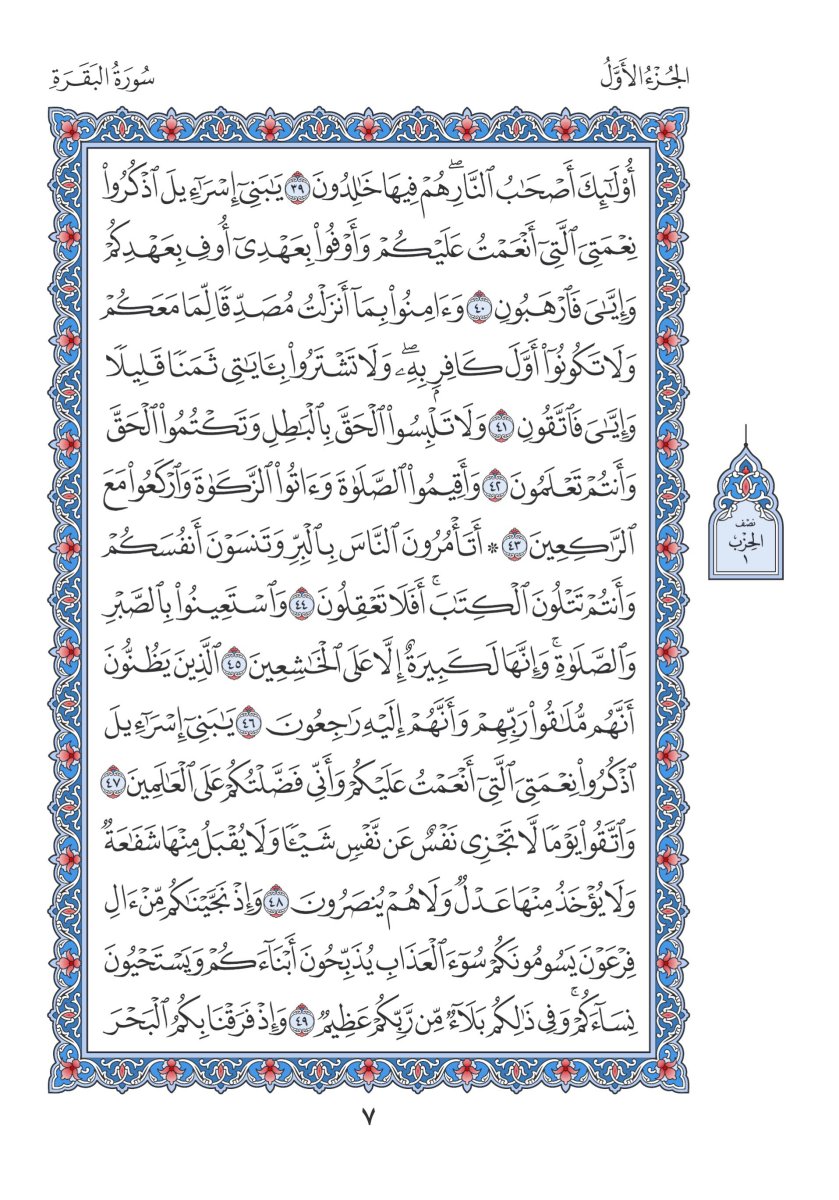 الجُزْءُ الأَوَّلُ
سُورَةُ البَقَرَةِ
أُوْلَٰٓئِكَ أَصۡحَٰبُ ٱلنَّارِۖ هُمۡ فِيهَا خَٰلِدُونَ ٣٩ يَٰبَنِيٓ إِسۡرَٰٓءِيلَ ٱذۡكُرُواْ
نِعۡمَتِيَ ٱلَّتِيٓ أَنۡعَمۡتُ عَلَيۡكُمۡ وَأَوۡفُواْ بِعَهۡدِيٓ أُوفِ بِعَهۡدِكُمۡ
وَإِيَّٰيَ فَٱرۡهَبُونِ ٤٠ وَءَامِنُواْ بِمَآ أَنزَلۡتُ مُصَدِّقٗا لِّمَا مَعَكُمۡ
وَلَا تَكُونُوٓاْ أَوَّلَ كَافِرِۭ بِهِۦۖ وَلَا تَشۡتَرُواْ بِـَٔايَٰتِي ثَمَنٗا قَلِيلٗا
وَإِيَّٰيَ فَٱتَّقُونِ ٤١ وَلَا تَلۡبِسُواْ ٱلۡحَقَّ بِٱلۡبَٰطِلِ وَتَكۡتُمُواْ ٱلۡحَقَّ
وَأَنتُمۡ تَعۡلَمُونَ ٤٢ وَأَقِيمُواْ ٱلصَّلَوٰةَ وَءَاتُواْ ٱلزَّكَوٰةَ وَٱرۡكَعُواْ مَعَ
ٱلرَّٰكِعِينَ ٤٣ * أَتَأۡمُرُونَ ٱلنَّاسَ بِٱلۡبِرِّ وَتَنسَوۡنَ أَنفُسَكُمۡ
وَأَنتُمۡ تَتۡلُونَ ٱلۡكِتَٰبَۚ أَفَلَا تَعۡقِلُونَ ٤٤ وَٱسۡتَعِينُواْ بِٱلصَّبۡرِ
وَٱلصَّلَوٰةِۚ وَإِنَّهَا لَكَبِيرَةٌ إِلَّا عَلَى ٱلۡخَٰشِعِينَ ٤٥ ٱلَّذِينَ يَظُنُّونَ
أَنَّهُم مُّلَٰقُواْ رَبِّهِمۡ وَأَنَّهُمۡ إِلَيۡهِ رَٰجِعُونَ ٤٦ يَٰبَنِيٓ إِسۡرَٰٓءِيلَ
ٱذۡكُرُواْ نِعۡمَتِيَ ٱلَّتِيٓ أَنۡعَمۡتُ عَلَيۡكُمۡ وَأَنِّي فَضَّلۡتُكُمۡ عَلَى ٱلۡعَٰلَمِينَ ٤٧
وَٱتَّقُواْ يَوۡمٗا لَّا تَجۡزِي نَفۡسٌ عَن نَّفۡسٖ شَيۡـٔٗا وَلَا يُقۡبَلُ مِنۡهَا شَفَٰعَةٞ
وَلَا يُؤۡخَذُ مِنۡهَا عَدۡلٞ وَلَا هُمۡ يُنصَرُونَ ٤٨ وَإِذۡ نَجَّيۡنَٰكُم مِّنۡ ءَالِ
فِرۡعَوۡنَ يَسُومُونَكُمۡ سُوٓءَ ٱلۡعَذَابِ يُذَبِّحُونَ أَبۡنَآءَكُمۡ وَيَسۡتَحۡيُونَ
نِسَآءَكُمۡۚ وَفِي ذَٰلِكُم بَلَآءٞ مِّن رَّبِّكُمۡ عَظِيمٞ ٤٩ وَإِذۡ فَرَقۡنَا بِكُمُ ٱلۡبَحۡرَ
نصف
الحزب
١
٧